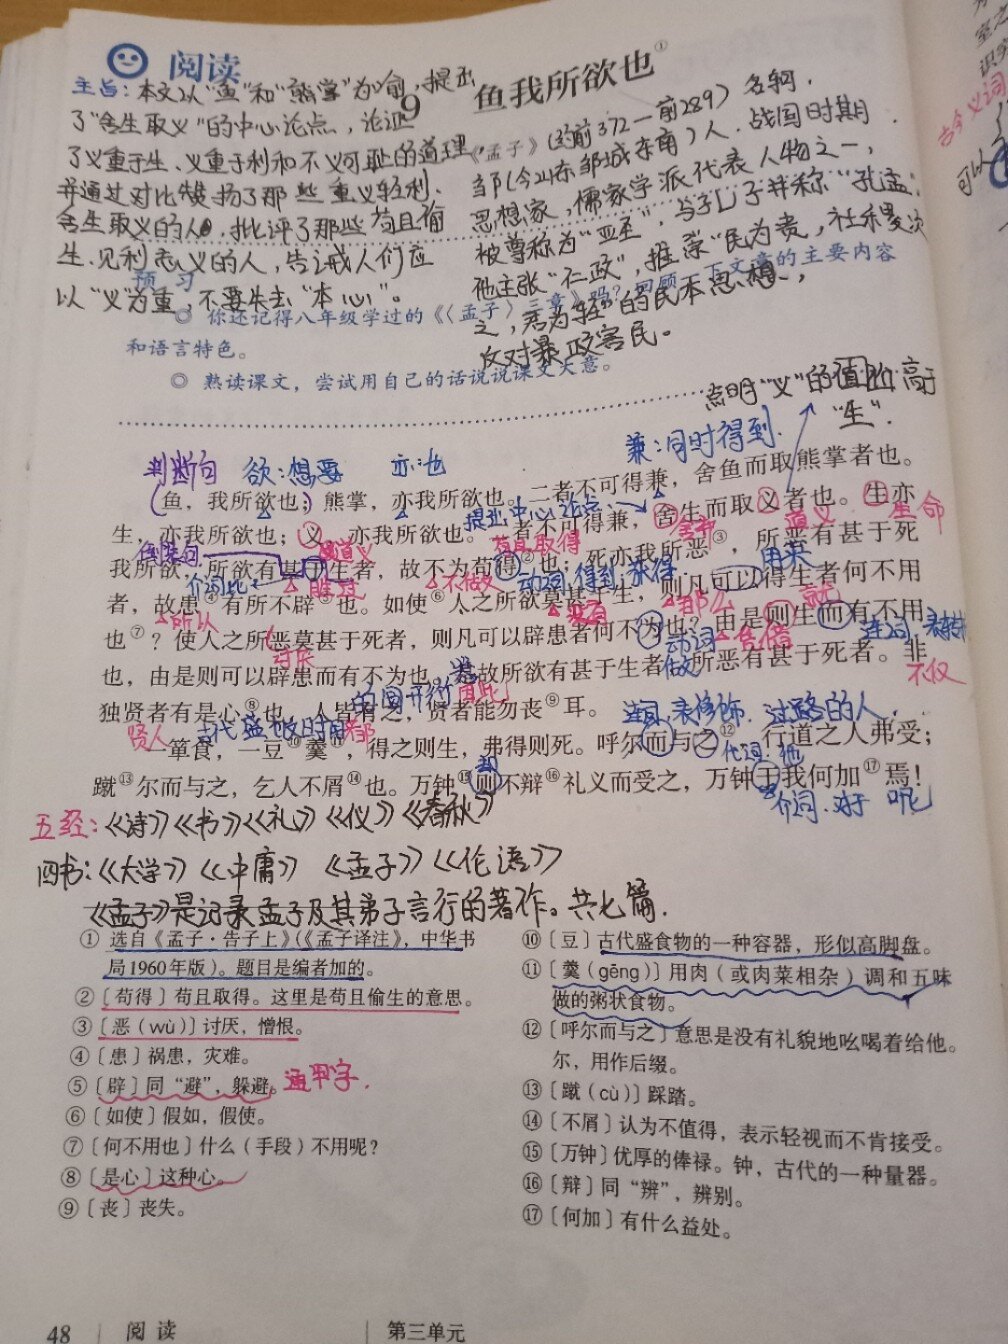 阅读
9 鱼我所欲也①
主旨：本文以“鱼”和“熊掌”为喻，提出
了“舍生取义”的中心论点，论证
了义重于生、义重于利和不义可耻的道理，
并通过对比赞扬了那些重义轻利、
舍生取义的人，批评了那些苟且偷
生、见利忘义的人，告诫人们应
以“义”为重，不要失去“本心”。
《孟子》（约前372—前289）名轲，
邹（今山东邹城东南）人．战国时期
思想家，儒家学派代表人物之一，
被尊称为“亚圣”，与孔子并称“孔孟”
他主张“仁政”，推崇“民为贵，社稷次
之，君为轻”的民本思想，
反对暴政害民。
预习
◎ 你还记得八年级学过的《〈孟子〉三章》吗？回顾一下文章的主要内容
和语言特色。
◎ 熟读课文，尝试用自己的话说说课文大意。
点明“义”的价值高于
“生”．
兼：同时得到．
判断句 欲：想要 亦：也
鱼，我所欲也；熊掌，亦我所欲也。二者不可得兼，舍鱼而取熊掌者也。
提出中心论点
生，亦我所欲也；义，亦我所欲也。二者不可得兼，舍生而取义者也。生亦
舍弃 道义 生命
倒装句 苟且取得
我所欲，所欲有甚于生者，故不为苟得②也；死亦我所恶③，所恶有甚于死
介词比 胜过 不做 动词，得到，获得 用来
者，故患④有所不辟⑤也。如使⑥人之所欲莫甚于生，则凡可以得生者何不用
所以 没有 那么 就
也⑦？使人之所恶莫甚于死者，则凡可以辟患者何不为也？由是则生而有不用
讨厌 动词 做 凭借 连词
也，由是则可以辟患而有不为也。是故所欲有甚于生者，所恶有甚于死者。非
因此 不仅
独贤者有是心⑧也，人皆有之，贤者能勿丧⑨耳。
贤人 古代盛 都 连词，表修饰．过路的人．
一箪食，一豆⑩羹⑪，得之则生，弗得则死。呼尔而与之⑫，行道之人弗受；
却 代词：他
蹴⑬尔而与之，乞人不屑⑭也。万钟⑮则不辩⑯礼义而受之，万钟于我何加⑰焉！
介词．对于 呢
五经：《诗》《书》《礼》《仪》《春秋》
四书：《大学》《中庸》《孟子》《论语》
《孟子》是记录孟子及其弟子言行的著作。共七篇．
① 选自《孟子·告子上》（《孟子译注》，中华书
局1960年版）。题目是编者加的。
② 〔苟得〕苟且取得。这里是苟且偷生的意思。
③ 〔恶（wù）〕讨厌，憎恨。
④ 〔患〕祸患，灾难。
⑤ 〔辟〕同“避”，躲避。通假字．
⑥ 〔如使〕假如，假使。
⑦ 〔何不用也〕什么（手段）不用呢？
⑧ 〔是心〕这种心。
⑨ 〔丧〕丧失。
⑩ 〔豆〕古代盛食物的一种容器，形似高脚盘。
⑪ 〔羹（gēng）〕用肉（或肉菜相杂）调和五味
做的粥状食物。
⑫ 〔呼尔而与之〕意思是没有礼貌地吆喝着给他。
尔，用作后缀。
⑬ 〔蹴（cù）〕踩踏。
⑭ 〔不屑〕认为不值得，表示轻视而不肯接受。
⑮ 〔万钟〕优厚的俸禄。钟，古代的一种量器。
⑯ 〔辩〕同“辨”，辨别。
⑰ 〔何加〕有什么益处。
48 阅读 第三单元
古今义词
可以